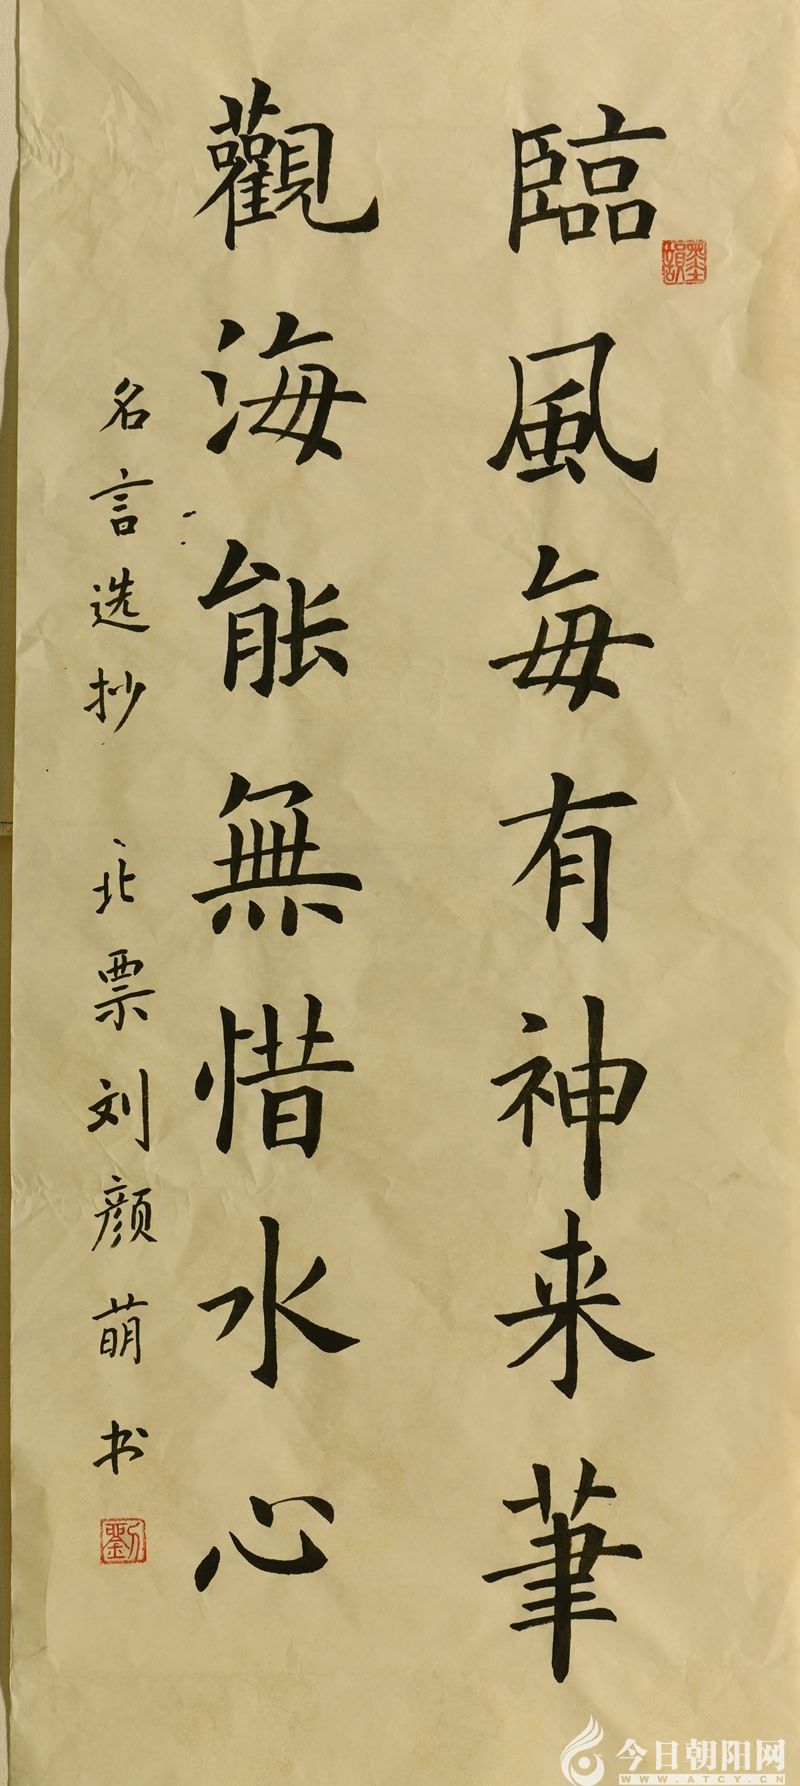 臨風每有神来筆
觀海能無惜水心
名言选抄 北票刘颜萌书
劉
今日朝阳网
WWW.ATCY.CN